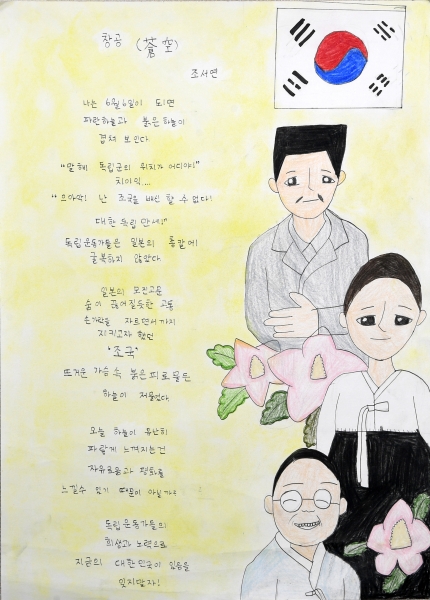 창공 (蒼空)
조서연
나는 6월 6일이 되면
파란하늘과 붉은 하늘이
겹쳐 보인다
"말해! 독립군의 위치가 어디야!"
치이익....
"으아악! 난 조국을 배신 할 수 없다!
대한 독립 만세!"
독립 운동가들은 일본의 총칼에
굴복하지 않았다.
일본의 모진고문
숨이 끊어질듯한 고통
손가락을 자르면서까지
지키고자 했던
'조국'
뜨거운 가슴 속 붉은 피로 물든
하늘이 저물었다.
오늘 하늘이 유난히
파랗게 느껴지는건
자유로움과 평화를
느낄수 있기 때문이 아닐까?
독립 운동가들의
희생과 노력으로
지금의 대한민국이 있음을
잊지말자!